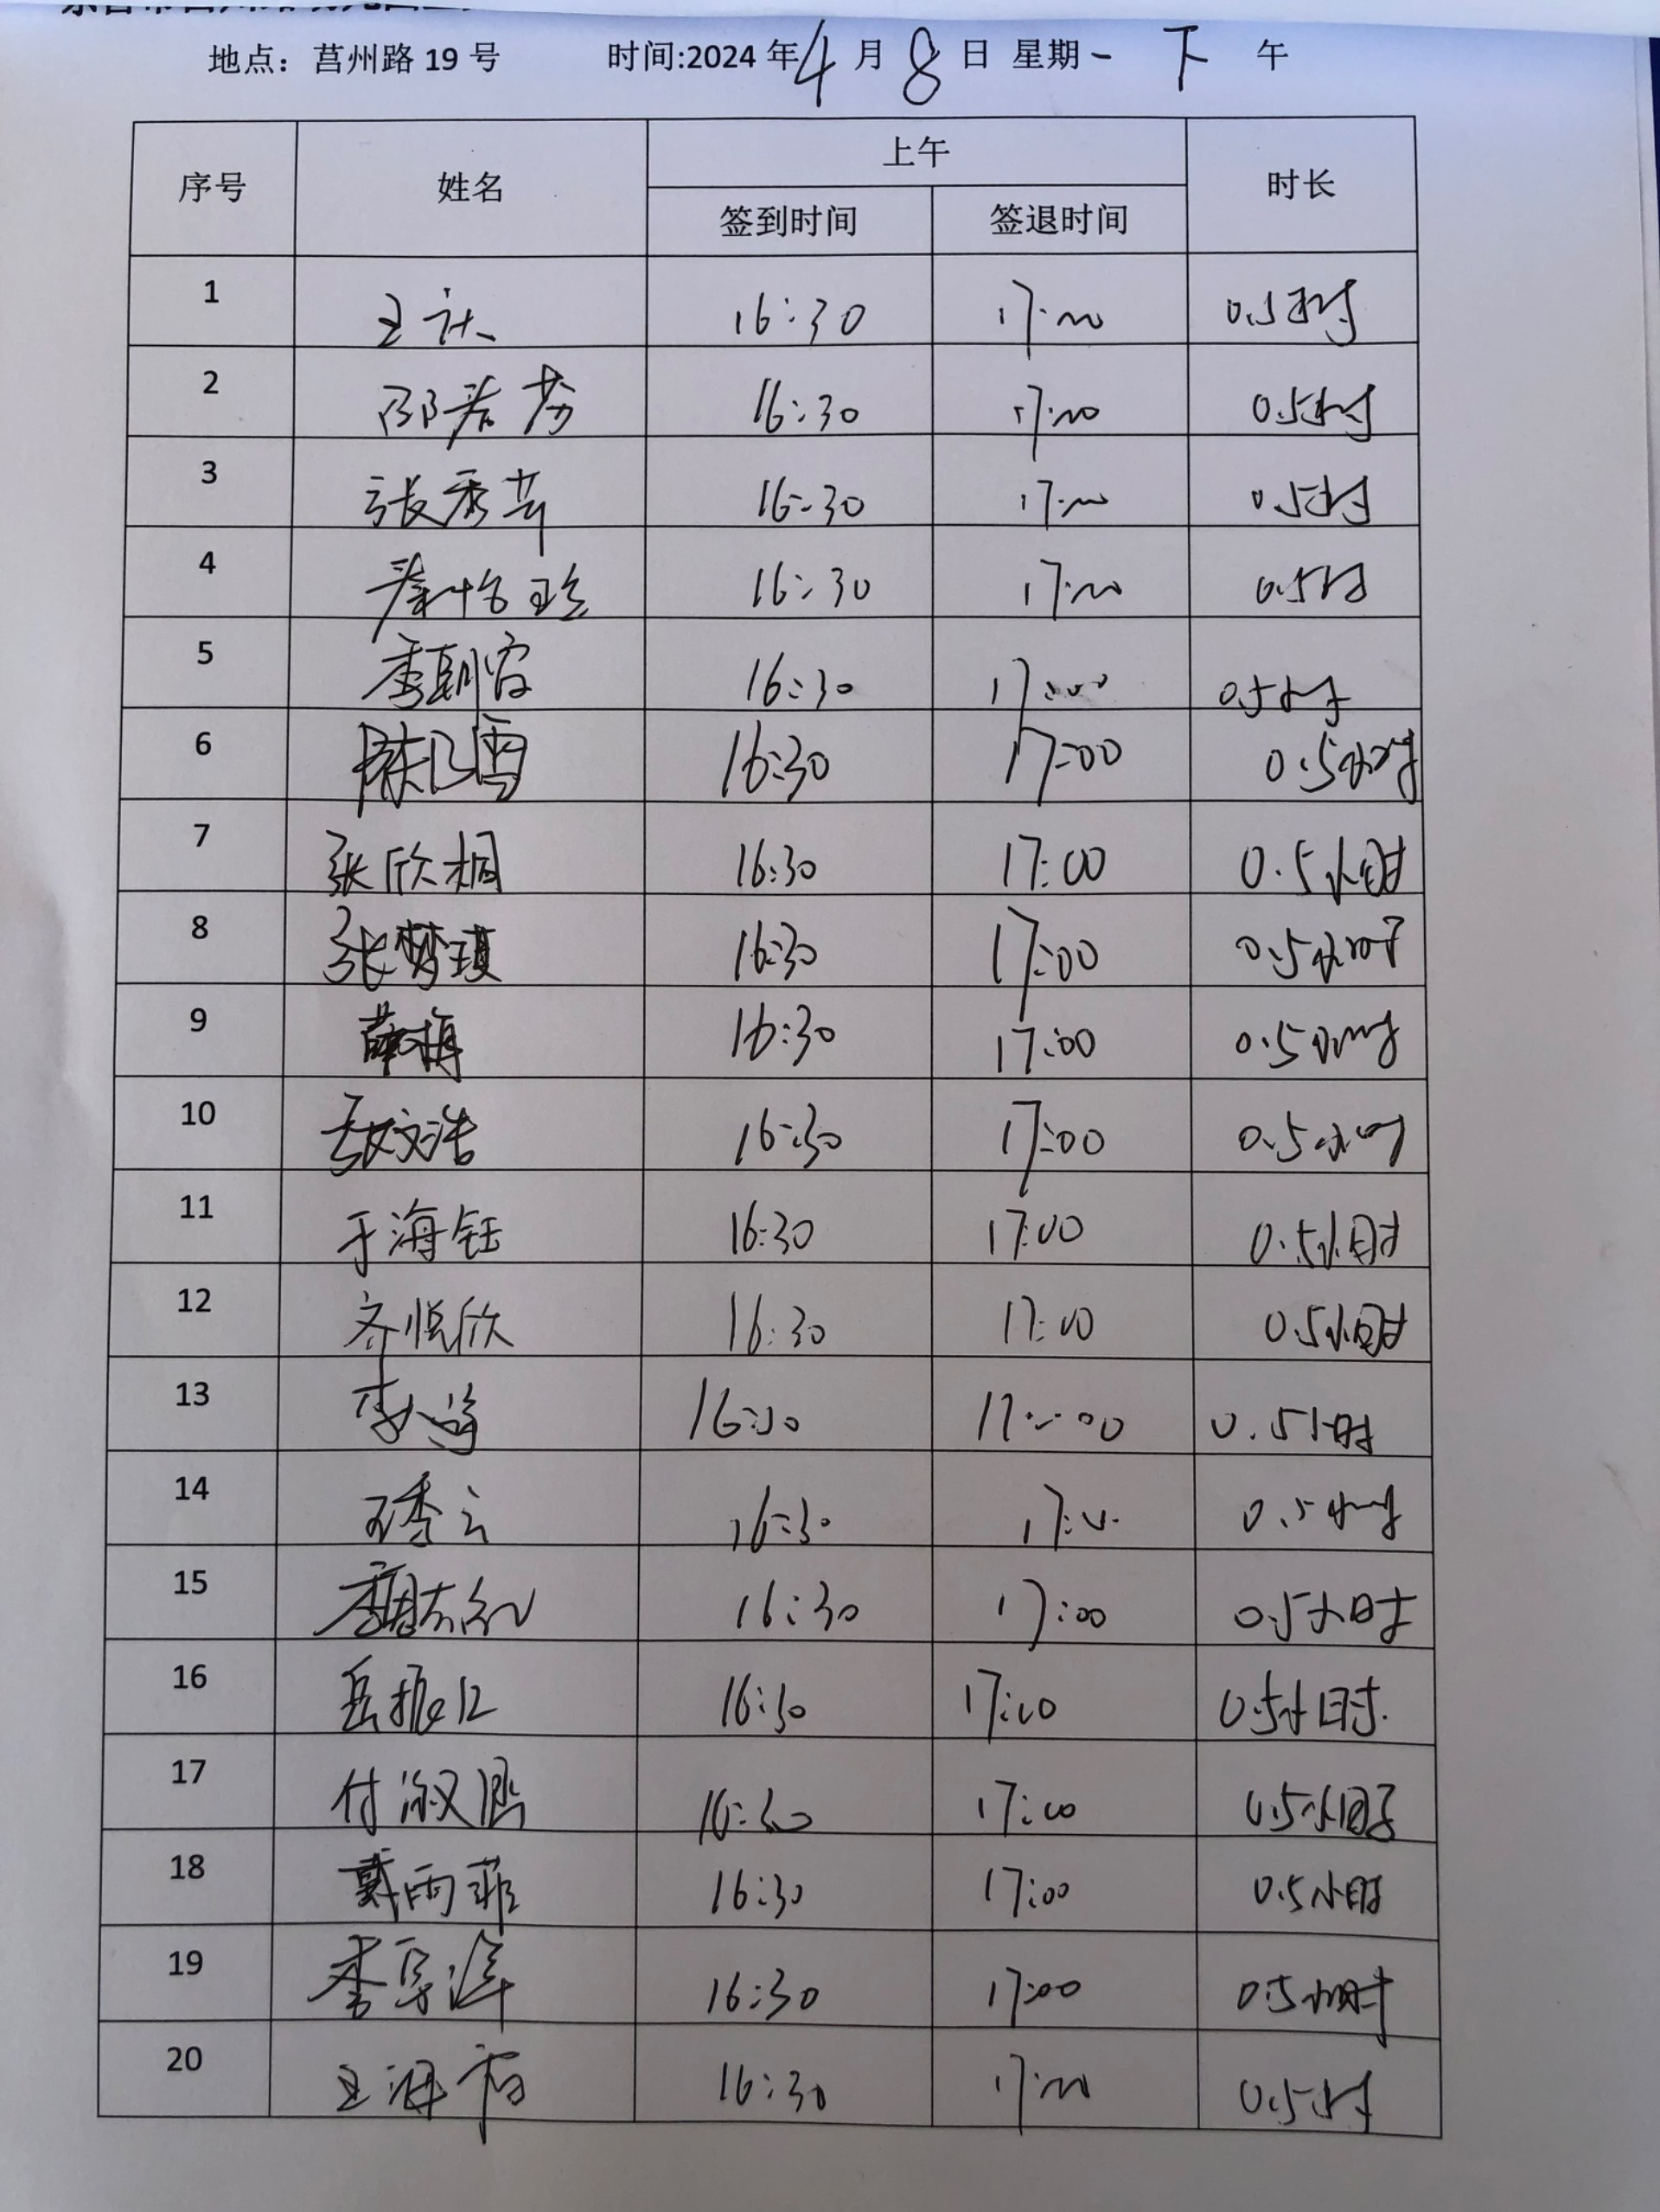 地点：莒州路 19 号 时间:2024 年 4 月 8 日 星期一 下 午
序号 姓名 上午 时长
签到时间 签退时间
1 16:30 17:00 0.5小时
2 16:30 17:00 0.5小时
3 张秀芹 16:30 17:00 0.5小时
4 16:30 17:00 0.5时
5 16:30 17:00 0.5小时
6 16:30 17:00 0.5小时
7 张欣桐 16:30 17:00 0.5小时
8 张梦琪 16:30 17:00 0.5小时
9 薛梅 16:30 17:00 0.5小时
10 16:30 17:00 0.5小时
11 于海钰 16:30 17:00 0.5小时
12 齐悦欣 16:30 17:00 0.5小时
13 16:30 17:00 0.5小时
14 16:30 17:00 0.5小时
15 16:30 17:00 0.5小时
16 16:30 17:00 0.5小时
17 16:30 17:00 0.5小时
18 戴雨菲 16:30 17:00 0.5小时
19 16:30 17:00 0.5小时
20 16:30 17:00 0.5小时